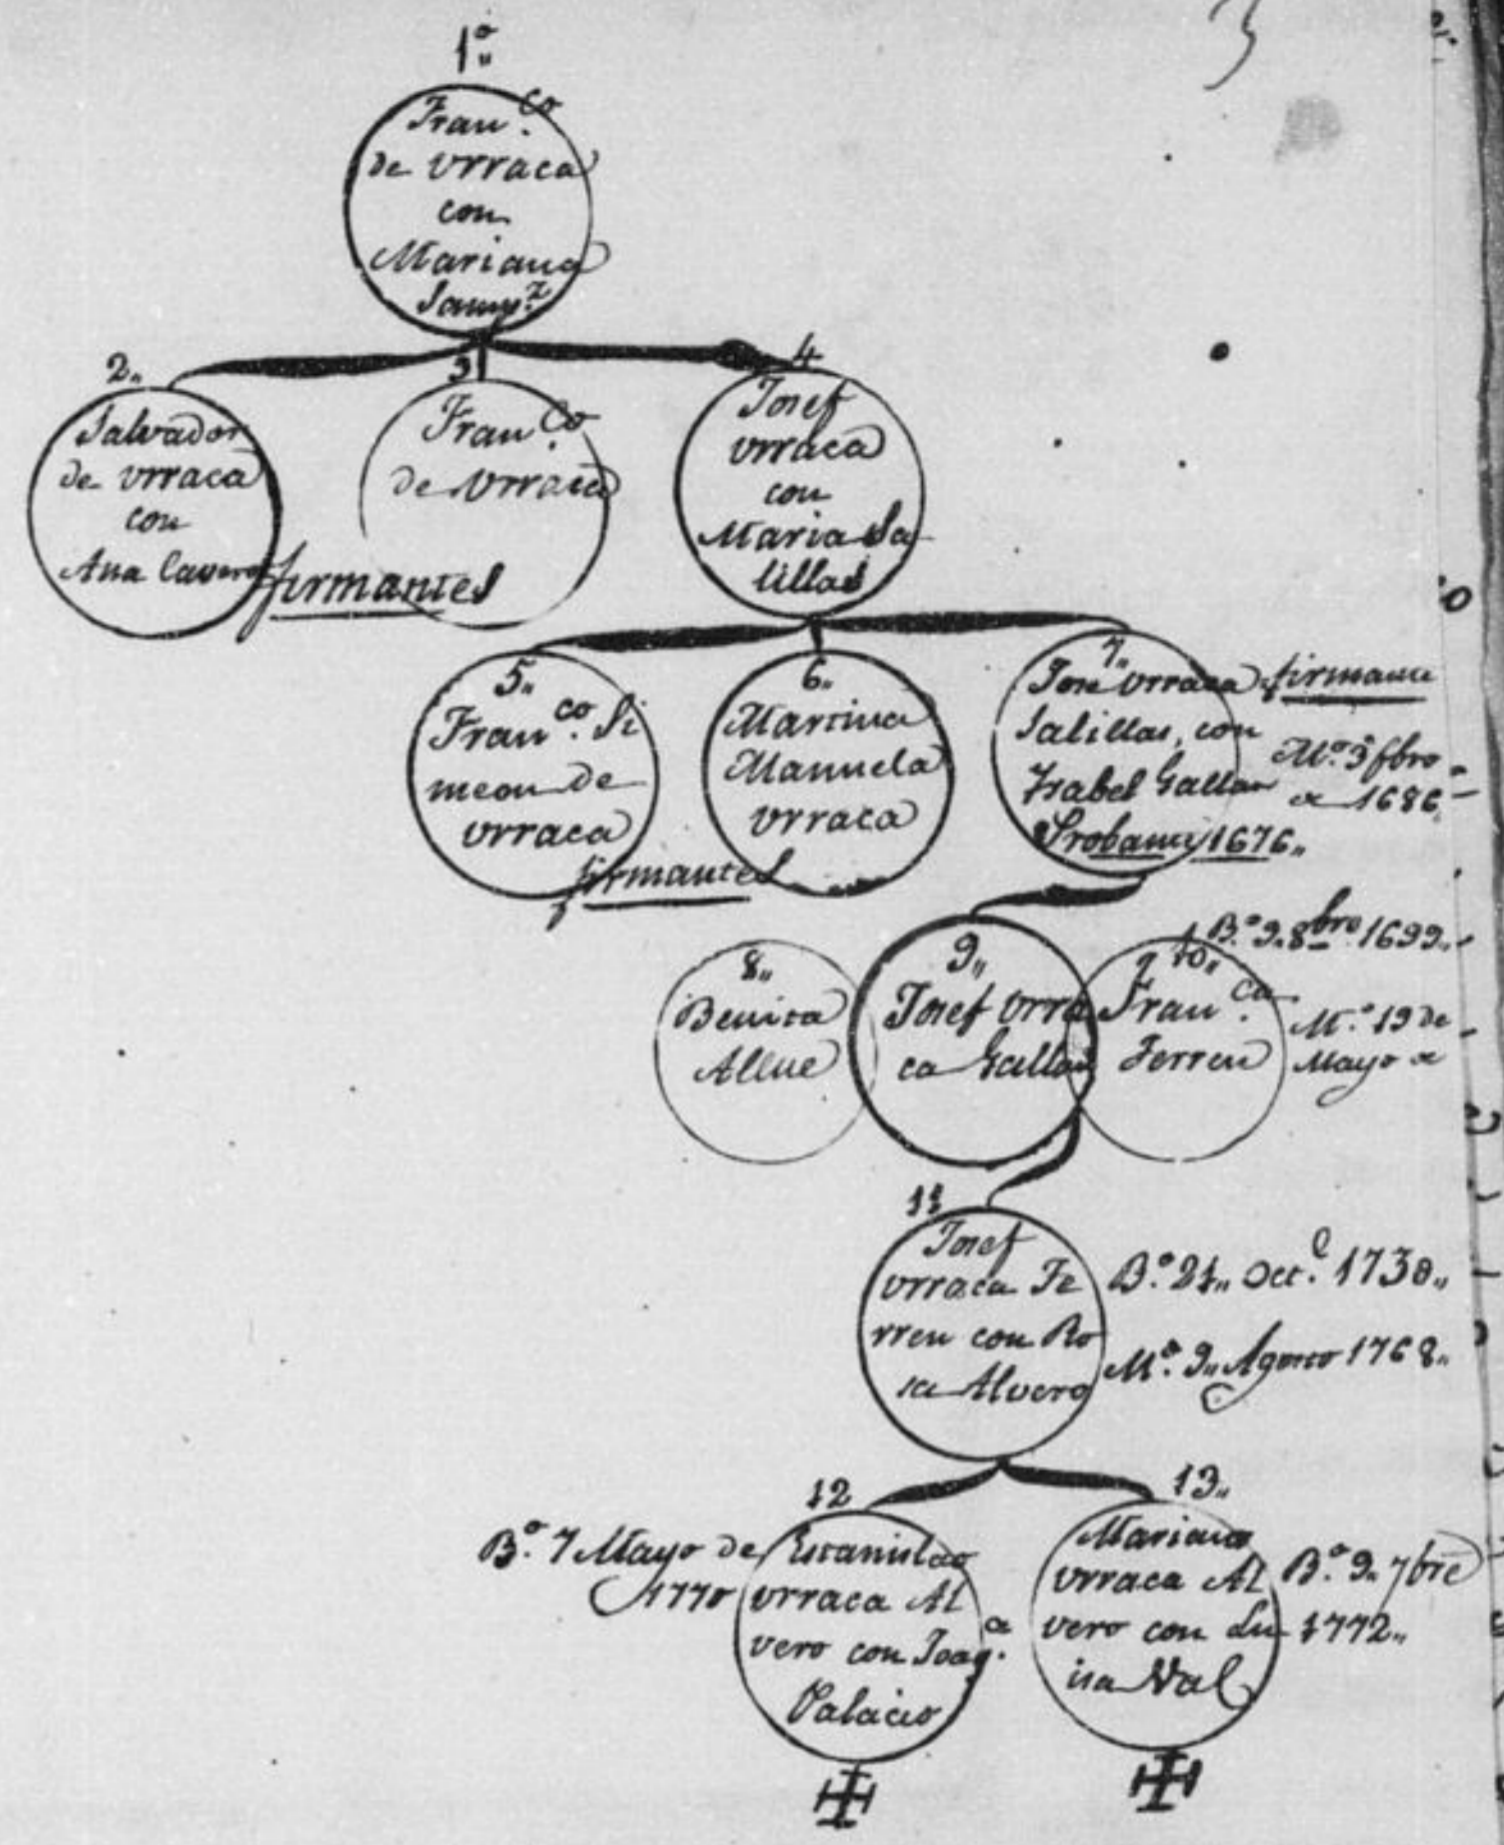 1º
Fran.co
de Urraca
con
Mariana
2.
Salvador
de Urraca
con
Ana Cavero
3
Fran.co
de Urraca
firmantes
4
Josef
Urraca
con
Maria Sa
lillas
5.
Fran.co Si
meon de
Urraca
6.
Martina
Manuela
Urraca
firmantes
7.
Jose Urraca
Salillas, con
Isabel Gallan
1676.
firmante
M.º 3 fbro
1686
8.
Benita
Allue
9.
Josef Urra
ca Gallan
10.
Fran.ca
Ferren
B.º 9. 8bre 1699.
M.º 19 de
Mayo
11
Josef
Urraca Fe
rren con Ro
sa Alvero
B.º 21. Oct.e 1738.
M.º 9. Agosto 1768.
12
Estanislao
Urraca Al
vero con Joaq.a
Palacio
B.º 7 Mayo de
1770
13.
Mariano
Urraca Al
vero con Lu
isa Val
B.º 9. 7bre
1772.